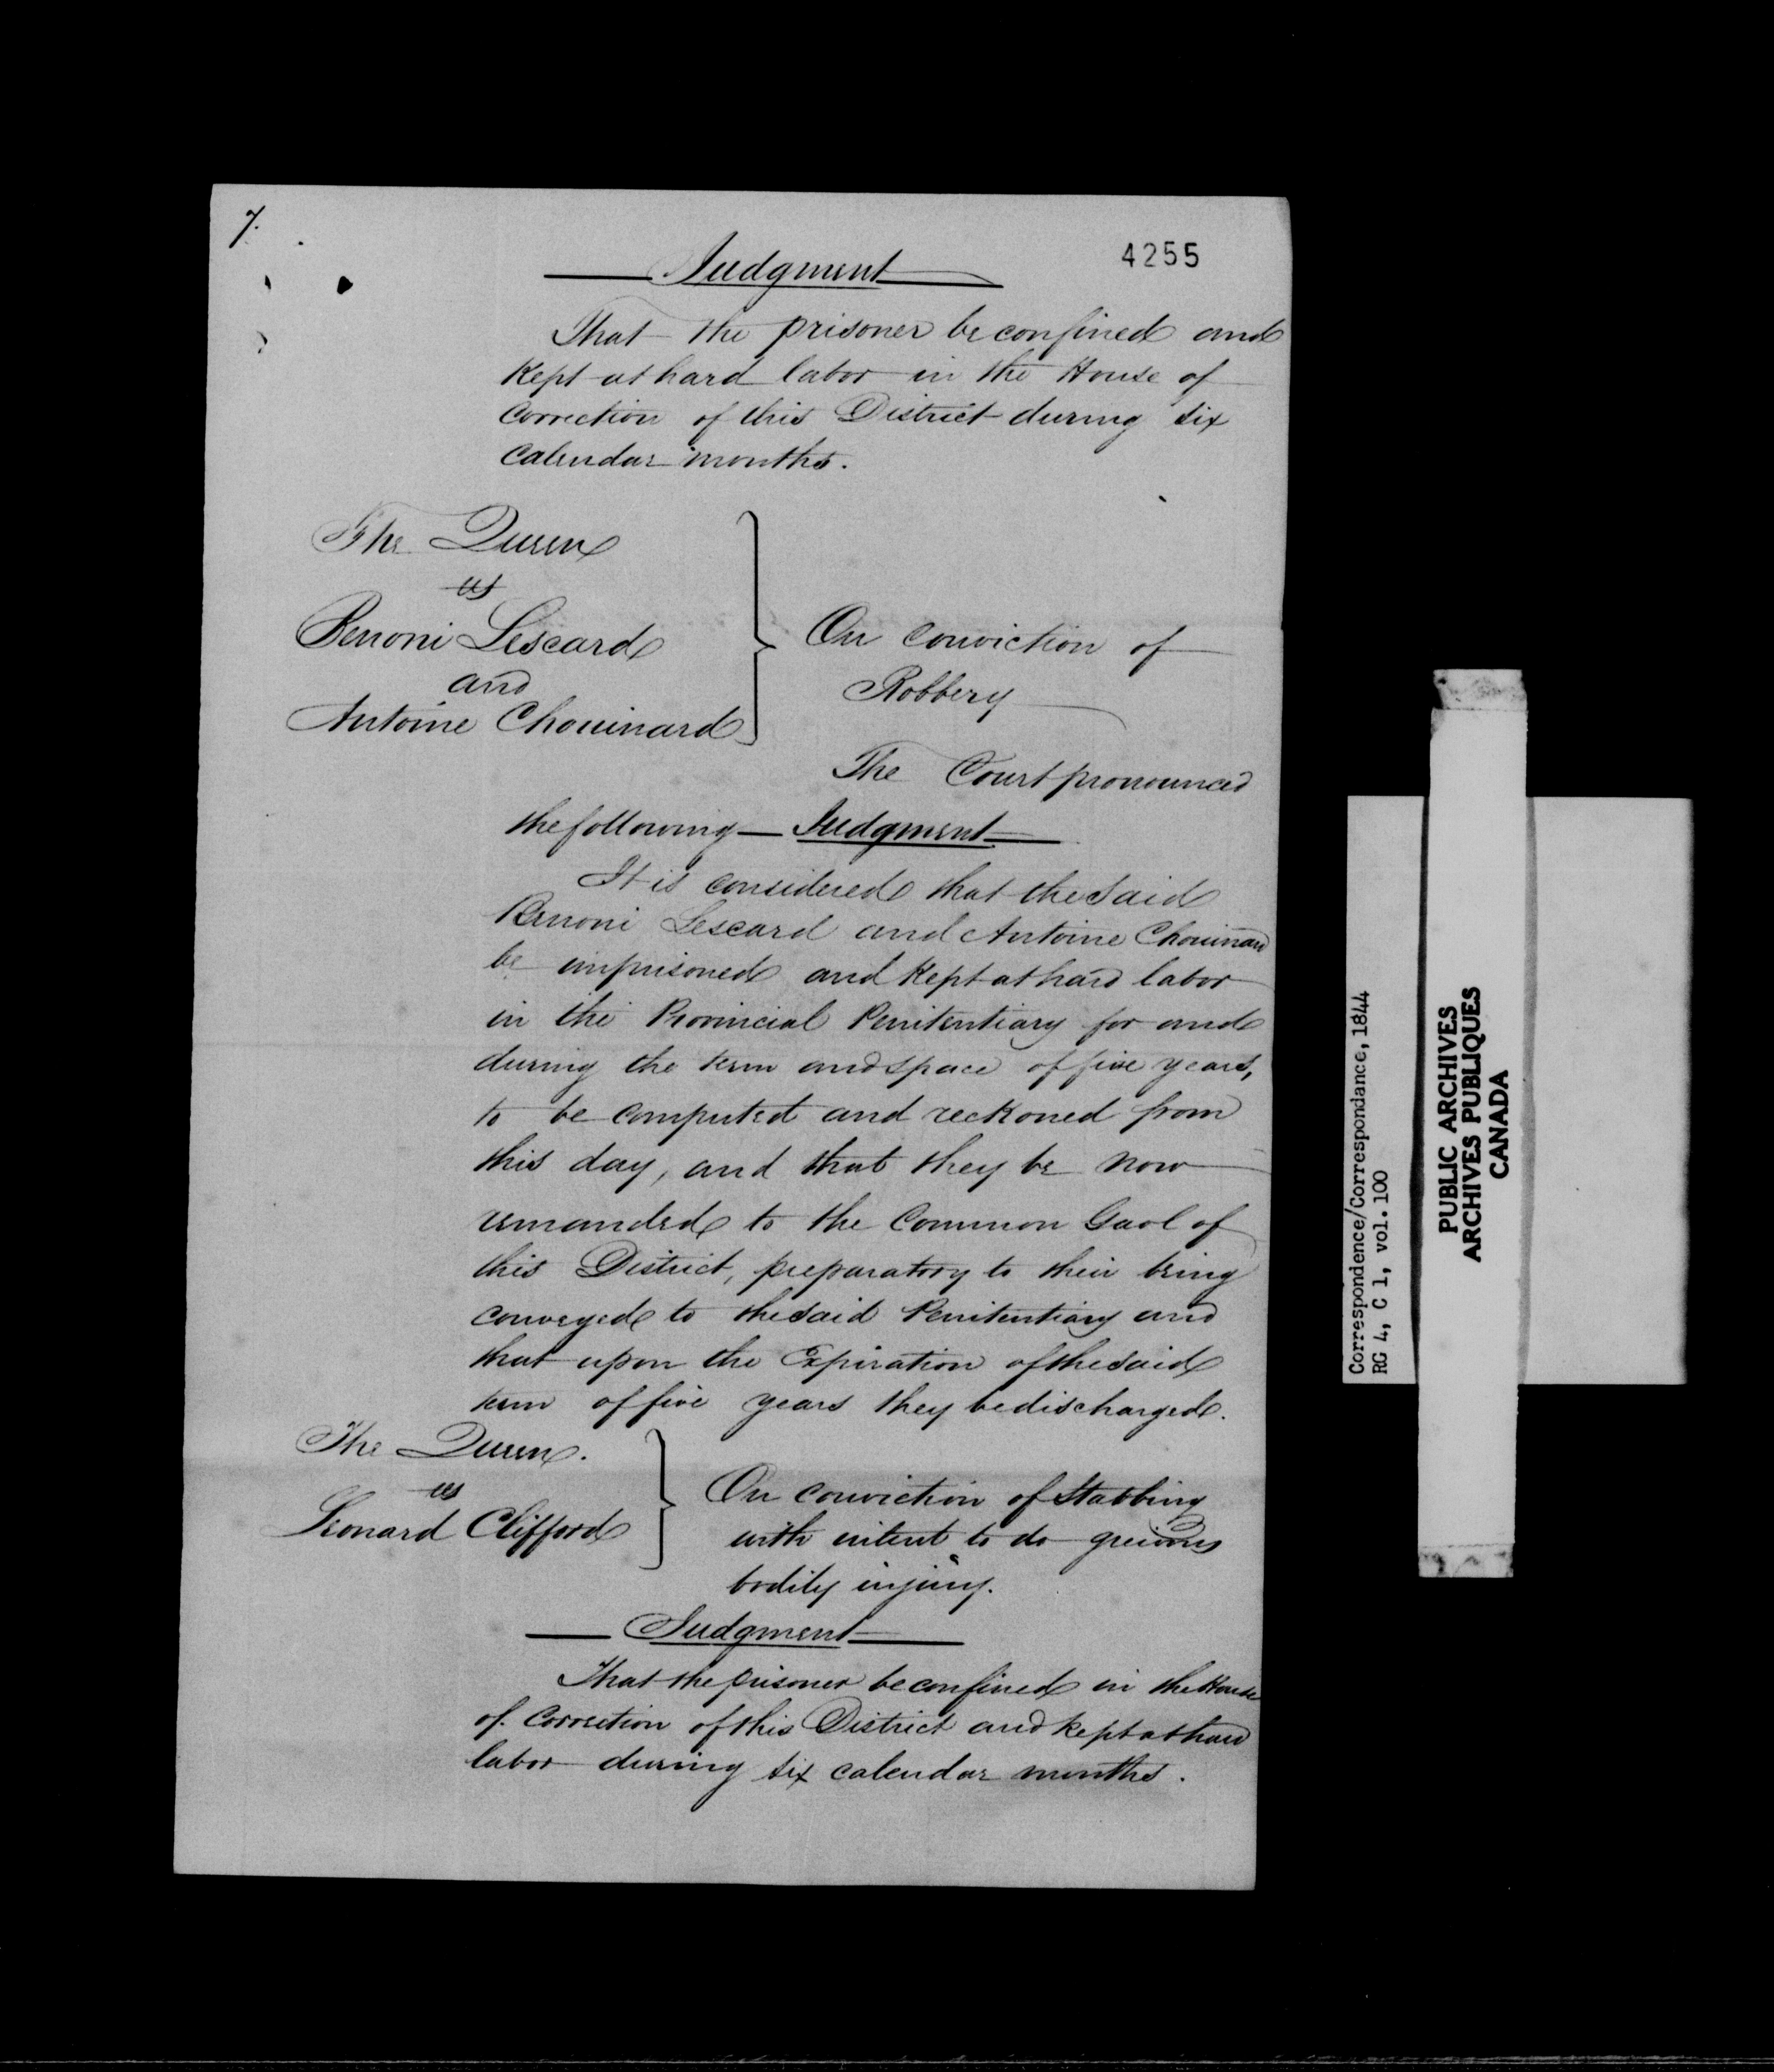 7.
4255
Judgment
That the prisoner be confined and
Kept at hard labor in the House of
Correction of this District during six
Calendar months.
The Queen
vs
Benoni Lescard
and
Antoine Chouinard
On conviction of
Robbery
The Court pronounced
the following Judgment
It is considered that the said
Benoni Lescard and Antoine Chouinard
be imprisoned and Kept at hard labor
in the Provincial Penitentiary for and
during the term and space of five years,
to be computed and reckoned from
this day, and that they be now
remanded to the Common Gaol of
this District, preparatory to their being
conveyed to the said Penitentiary and
that upon the Expiration of the said
term of five years they be discharged.
The Queen.
vs
Leonard Clifford
On conviction of Stabbing
with intent to do greivous
bodily injury.
Judgment
That the prisoner be confined in the House
of Correction of this District and kept at hard
labor during six calendar months.
Correspondence/Correspondance, 1844
RG 4, C 1, vol. 100
PUBLIC ARCHIVES
ARCHIVES PUBLIQUES
CANADA